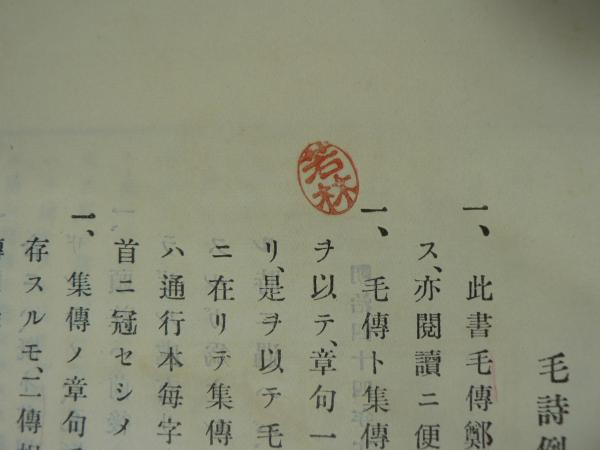 毛詩例
一、此書毛傳鄭
ス、亦閱讀ニ便
一、毛傳ト集傳
ヲ以テ、章句一
リ、是ヲ以テ毛
ニ在リテ集傳
ハ通行本每字
首ニ冠セシメ
一、集傳ノ章句
存スルモ、二傳
若林